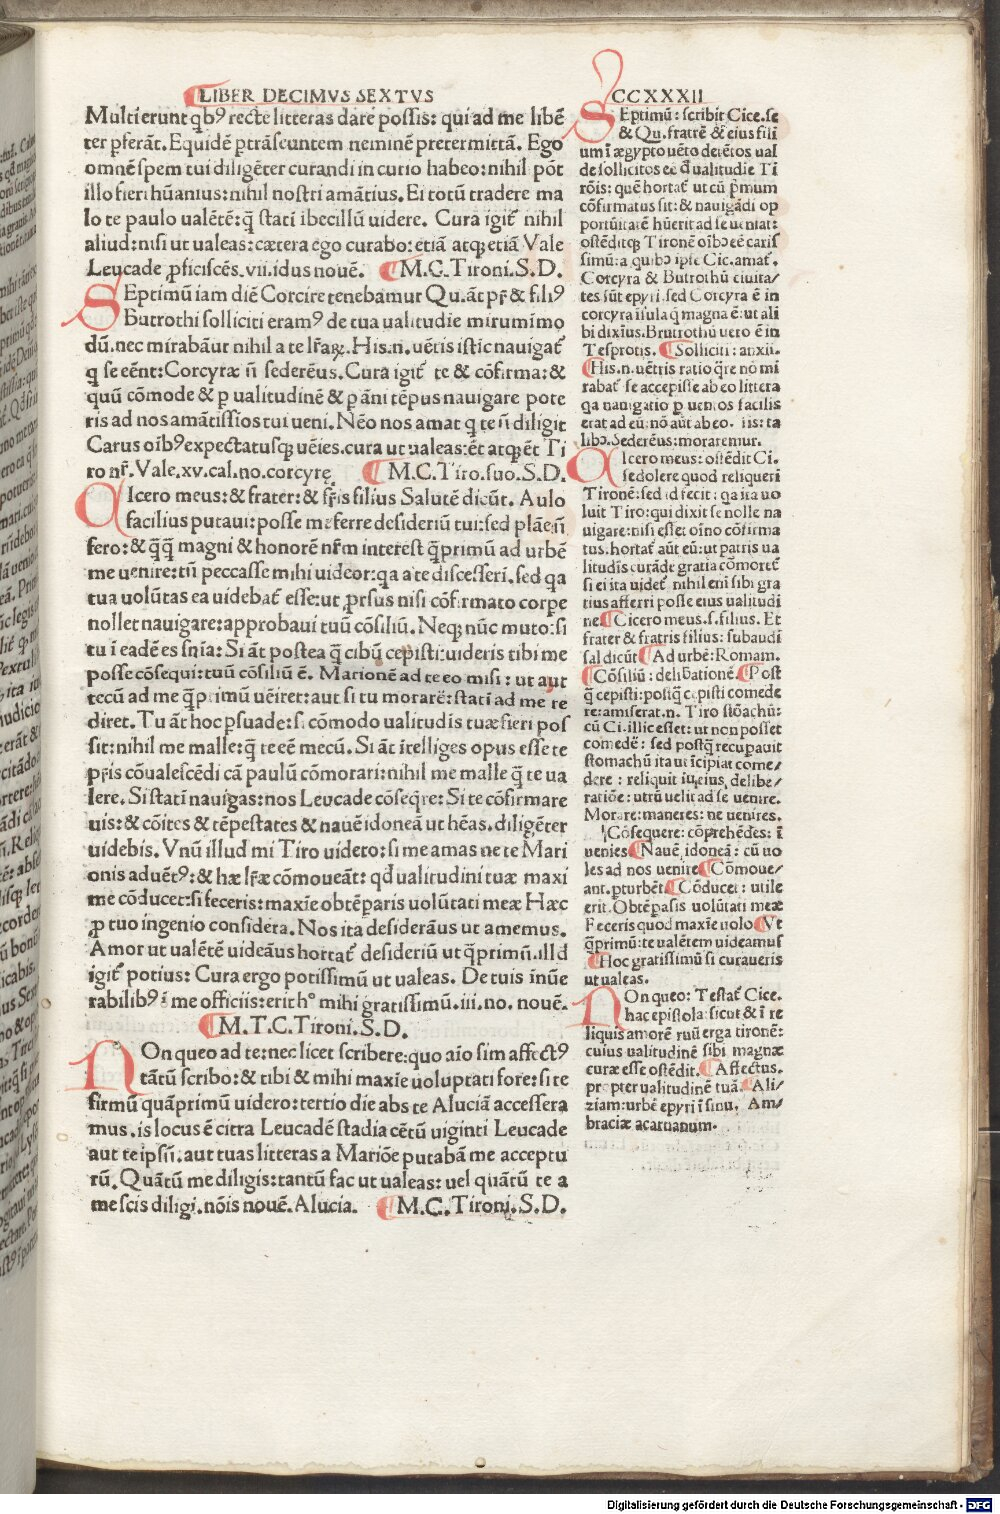 LIBER DECIMVS SEXTVS
CCXXXII
Multi erunt qbꝰ recte litteras dare possis: qui ad me libē
ter pferāt. Equidē ptrāseuntem neminē pretermittā. Ego
omnē spem tui diligēter curandi in curio habeo: nihil pōt
illo fieri hūanius: nihil nostri amātius. Ei totū tradere ma
lo te paulo ualētē: q̄ stati ībecillū uidere. Cura igit̄ nihil
aliud: nisi ut ualeas: cætera ego curabo: etiā atqꝫ etiā Vale
Leucade ꝓficiscēs. vii. idus nouē. M. C. Tironi. S. D.
SEptimū iam diē Corcire tenebamur Qu. āt pr̄ & filiꝰ
Butrothi solliciti eramꝰ de tua ualitudie mirum īmo
dū. nec mirabāur nihil a te lr̄aꝝ. His. n. uētis istic nauigat̄
q se eēnt: Corcyræ ñ sederēus. Cura igit̄ te & cōfirma: &
quū cōmode & p ualitudinē & p āni tēpus nauigare pote
ris ad nos amātissīos tui ueni. Nēo nos amat q te ñ diligit
Carus oībꝰ expectatusqꝫ uēies. cura ut ualeas: ēt atqꝫ ēt Ti
ro nr̄. Vale. xv. cal. no. corcyrę M. C. Tiro. suo. S. D.
CIcero meus: & frater: & fr̄is filius Salutē dicūt. A ulo
facilius putaui: posse me ferre desideriū tui: sed plāe ñ
fero: & q̄q̄ magni & honorē nr̄m interest q̄primū ad urbē
me uenire: tñ peccasse mihi uideor: qa a te discesserī. sed qa
tua uolūtas ea uidebat̄ esse: ut ꝓrsus nisi cōfirmato corpe
nollet nauigare: approbaui tuū cōsiliū. Neqꝫ nūc muto: si
tu ī eadē es snīa: Si āt postea q̄ cibū cepisti: uideris tibi me
posse cōsequi: tuū cōsiliū ē. Marionē ad te eo misi: ut aut
tecū ad me q̄primū uēiret: aut si tu morarē: stati ad me re
diret. Tu āt hoc psuade: si cōmodo ualitudīs tuæ fieri pos
sit: nihil me malle: q̄ te eē mecū. Si āt ītelliges opus esse te
p̄ris cōualescēdi cā paulū cōmorari: nihil me malle q̄ te ua
lere. Si stati nauigas: nos Leucade cōseq̄re: Si te cōfirmare
uis: & cōites & tēpestates & nauē idoneā ut hēas. diligēter
uidebis. Vnū illud mi Tiro uideto: si me amas ne te Mari
onis aduētꝰ: & hæ lr̄æ cōmoueāt: qd̄ ualitudini tuæ maxi
me cōducet: si feceris: maxīe obtēparis uolūtati meæ Hæc
ꝓ tuo ingenio considera. Nos ita desiderāus ut amemus.
Amor ut ualētē uideāus hortat̄ desideriū ut q̄primū. illd
igit̄ potius: Cura ergo potissimū ut ualeas. De tuis inūe
rabilibꝰ ī me officiis: erit hᵒ mihi gratissimū. iii. no. nouē.
M. T. C. Tironi. S. D.
NOn queo ad te: nec licet scribere: quo aīo sim affectꝰ
tātū scribo: & tibi & mihi maxīe uoluptati fore: si te
firmū quāprimū uidero: tertio die abs te Aluciā accessera
mus. is locus ē citra Leucadē stadia cētū uiginti Leucade
aut te ipsū. aut tuas litteras a Mariōe putabā me acceptu
rū. Quātū me diligis: tantū fac ut ualeas: uel quātū te a
me scis diligi. nōis nouē. Alucia. M. C. Tironi. S. D.
SEptimū: scribit Cice. se
& Qu. fratrē & eius filī
um ī ægypto uēto detētos ual
de sollicitos eē d̄ ualitudie Ti
rōis: quē hortat̄ ut cū p̄mum
cōfirmatus sit: & nauigādi op
portūitatē hūerit ad se ueniat:
ostēditqꝫ Tironē oībꝰ eē caris
simū: a quibꝰ ipse Cic. amat̄.
Corcyra & Butrothū ciuita/
tes sūt epyri. sed Corcyra ē in
corcyra īsula q̄ magna ē: ut ali
bi dixīus. Brutrothū uero ē in
Tesprotis. Solliciti: anxii.
His. n. uētris ratio q̄re nō mi
rabat̄ se accepisse ab eo littera
qa nauigatio p uentos facilis
erat ad eū: nō aūt ab eo. iis: ta
libꝰ. Sederēus: moraremur.
CIcero meus: ostēdit Ci.
se dolere quod reliqueri
Tironē: sed id fecit: qa ita uo
luit Tiro: qui dixit se nolle na
uigare: nisi esset oīno cōfirma
tus. hortat̄ aūt eū: ut patris ua
litudīs curāde gratia cōmoret̄
si ei ita uidet̄ nihil enī sibi gra
tius afferri posse eius ualitudi
ne. Cicero meus. s. filius. Et
frater & fratris filius: subaudi
sal dicūt Ad urbē: Romam.
Cōsiliū: delibationē. Post
q̄ cepisti: postq̄ cepisti comede
re: amiserat. n. Tiro stōachū:
cū Ci. illic esset: ut non posset
comedē: sed postq̄ recupauit
stomachū ita ut īcipiat come/
dere: reliquit iudicius, delibe/
ratiōe: utrū uelit ad se uenire.
Morare: maneres: ne uenires.
Cōsequere: cōprehēdes: ī
uenies Nauē idoneā: cū uo
les ad nos uenire Cōmoue/
ant. pturbēt Cōducet: utile
erit. Obtēpasis uolūtati meæ
Feceris quod maxīe uolo Vt
q̄primū: te ualētem uideamus
Hoc gratissimū si curaueris
ut ualeas.
NOn queo: Testat̄ Cice.
hac epistola: sicut & ī re
liquis amorē suū erga tironē:
cuius ualitudinē sibi magnæ
curæ esse ostēdit. Affectus.
propter ualitudinē tuā. Ali/
ziam: urbē epyri ī sinu. Am/
braciæ acarnanum.
Digitalisierung gefördert durch die Deutsche Forschungsgemeinschaft - DFG